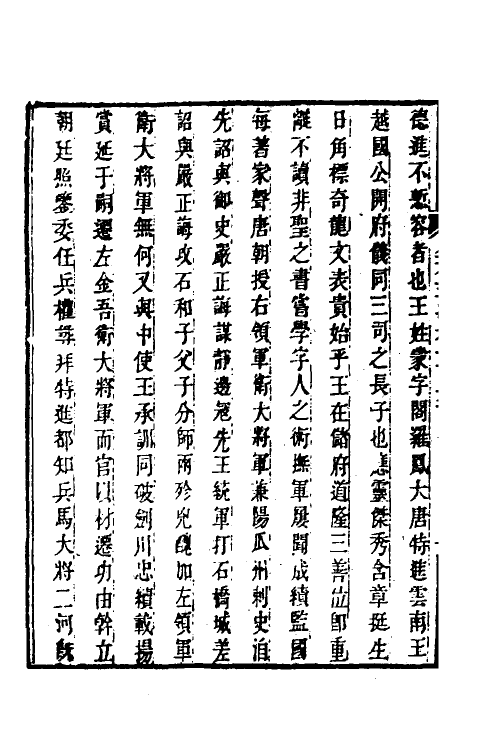 德進不慙容者也王姓蒙字閣羅鳳大唐特進雲南王
越國公開府儀同三司之長子也應靈傑秀含章挺生
日角標奇龍文表貴始乎王在儲府道隆三善位即重
離不讀非聖之書嘗學字人之術撫軍屢聞成績監國
每著家聲唐朝授右領軍衛大將軍兼陽瓜州刺史洎
先詔與御史嚴正誨謀靜邊寇先王統軍打石橋城差
詔與嚴正誨攻石和子父子分師兩殄兇醜加左領軍
衛大將軍無何又與中使王承訓同破劍川忠績載揚
賞延于嗣遷左金吾衛大將軍而官以材遷功由幹立
朝廷照鑒委任兵權尋拜特進都知兵馬大將二河既